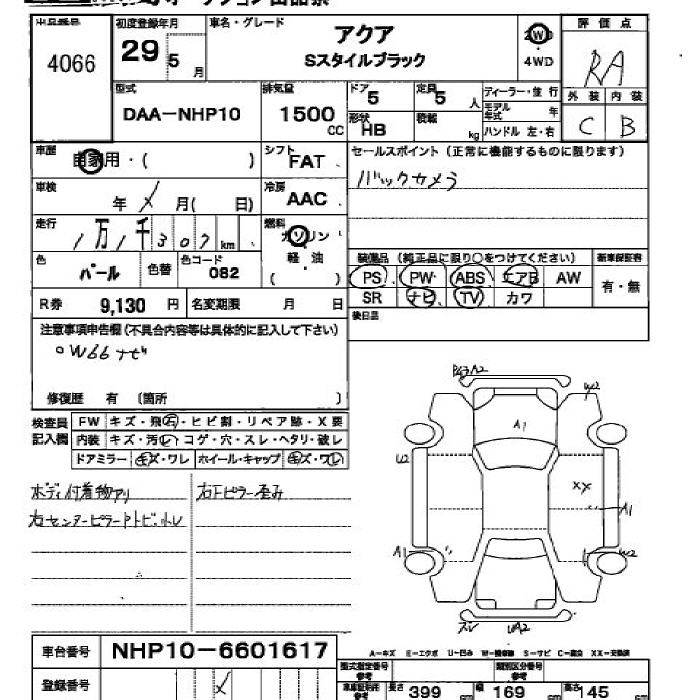 4066
初度登録年月
29 5 月
車名・グレード
アクア
Sスタイルブラック
2WD
4WD
評価点
RA
外装 内装
C B
型式
DAA-NHP10
排気量
1500 CC
ドア 5
定員 5 人
形状 HB
積載 kg
ディーラー・並行
モデル年式 年
ハンドル 左・右
車歴
自家用・( )
シフト
FAT
セールスポイント (正常に機能するものに限ります)
バックカメラ
車検
年 月( 日)
冷房
AAC
走行
1万1千307 km
燃料
ガソリン
軽油
( )
色
パール
色替
色コード
082
装備品 (純正品に限り○をつけてください)
新車保証書
PS PW ABS エアB AW
SR ナビ TV カワ
有・無
R券 9,130 円
名変期限 月 日
後日品
注意事項申告欄(不具合内容等は具体的に記入して下さい)
○W66ナビ
修復歴 有 (箇所 )
検査員
記入欄
FW キズ・飛石・ヒビ割・リペア跡・X要
内装 キズ・汚レ・コゲ・穴・スレ・ヘタリ・破レ
ドアミラー キズ・ワレ ホイール・キャップ キズ・ワレ
ボディ付着物アリ
右センターピラーアトビ.小レ
右Fピラー歪み
A2
W2
A1
U2
XX
A1
A1
W2
スレ UA2
車台番号
NHP10-6601617
登録番号
A-キズ E-エクボ U-凹み W-補修跡 S-サビ C-腐食 XX-交換済
型式指定番号
参考
類別区分番号
参考
長さ 399 cm
幅 169 cm
高さ 145 cm